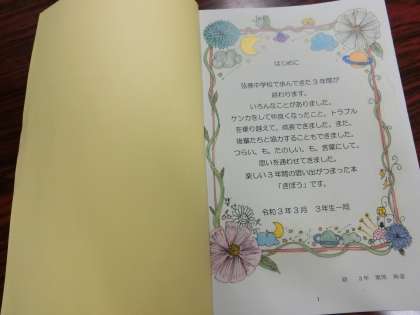 はじめに
弥栄中学校で歩んできた3年間が
終わります。
いろんなことがありました。
ケンカをして仲良くなったこと、トラブル
を乗り越えて、成長できました。また、
後輩たちと協力することもできました。
つらい、も。たのしい、も。言葉にして、
思いを通わせてきました。
楽しい3年間の思い出がつまった本
「きぼう」です。
令和3年3月 3年生一同
3年
1